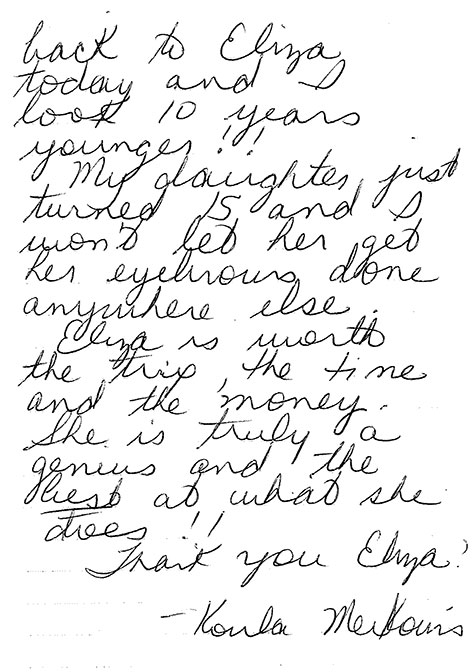 back to Eliza
today and I
look 10 years
younger!!
My daughter just
turned 15 and I
won't let her get
her eyebrows done
anywhere else.
Eliza is worth
the trip, the time
and the money.
She is truly a
genius and the
best at what she
does!!
Thank you Eliza!
- Koula